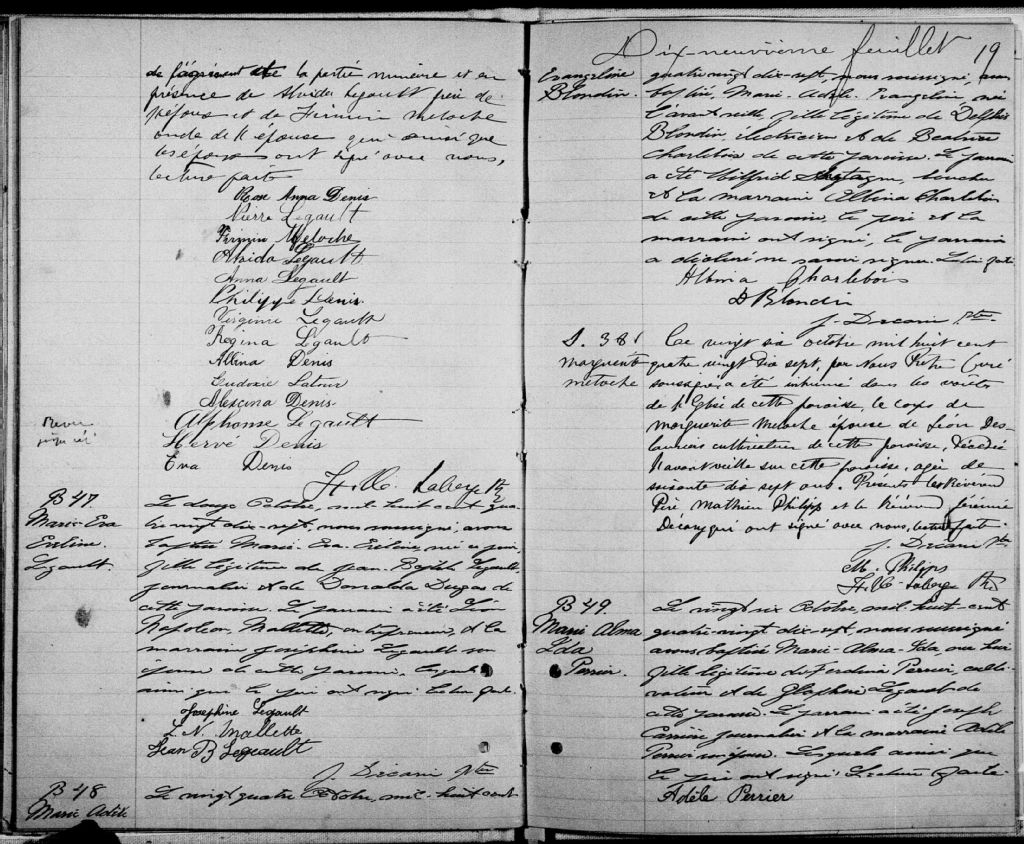 de la partie mineure et en
présence de Alvida Legault père de
l'époux et de Firmin Meloche
oncle de l'épouse qui ainsi que
les époux ont signé avec nous,
lecture faite
Rose Anna Denis
Pierre Legault
Firmin Meloche
Alvida Legault
Anna Legault
Philippe Denis
Virginie Legault
Regina Legault
Albina Denis
Eudoxie Latour
Alexina Denis
Alphonse Legault
Hervé Denis
Eva Denis
B 47
Marie-Eva
Legault.
Le douze Octobre, mil huit cent qua-
tre vingt dix-sept, nous soussigné, avons
baptisé Marie-Eva née ce jour,
fille légitime de Jean-Baptiste Legault,
journalier et de Donalda de
cette paroisse. Le parrain a été Léon
Napoleon Mallette, entrepreneur, et la
marraine Joséphine Legault son
épouse de cette paroisse, lesquels
ainsi que le père ont signé. Lecture faite.
Josephine Legault
L. N. Mallette
Jean B Legault
B 48
Marie Adèle
Le vingt quatre Octobre, mil-huit cent
Dix-neuvième feuillet 19
Evangeline
Blondin.
quatre vingt dix-sept, nous soussigné, avons
baptisé, Marie-Adèle-Evangeline née
l'avant-veille, fille légitime de Delphis
Blondin électricien et de Beatrice
Charlebois de cette paroisse. Le parrain
a été Wilfrid boucher
et la marraine Albina Charlebois
de cette paroisse, le père et la
marraine ont signé, le parrain
a déclaré ne savoir signer. Lecture faite
Albina Charlebois
D Blondin
S. 38
Marguerite
Meloche
Ce vingt six octobre mil huit cent
quatre vingt dix sept, par Nous Prêtre Curé
soussigné, a été inhumé dans les voûtes
de l'Eglise de cette paroisse, le corps de
Marguerite Meloche épouse de Léon Des-
lauriers cultivateur de cette paroisse, décédée
l'avant veille sur cette paroisse, agée de
soixante dix sept ans. Présents les Révérend
Père, Mathieu Philipps et le Révérend Jérémie
Décary qui ont signé avec nous, lecture faite.
M. Philipps
B 49
Marie Alma
Ida
Perrier.
Le vingt six Octobre, mil huit-cent
quatre-vingt dix-sept, nous soussigné
avons baptisé Marie-Alma-Ida, née hier
fille légitime de Perrier, culti-
vateur et de Legault de
cette paroisse. Le parrain a été Joseph
journalier et la marraine Adèle
Perrier Lesquels ainsi que
le père ont signé. Lecture faite
Adèle Perrier